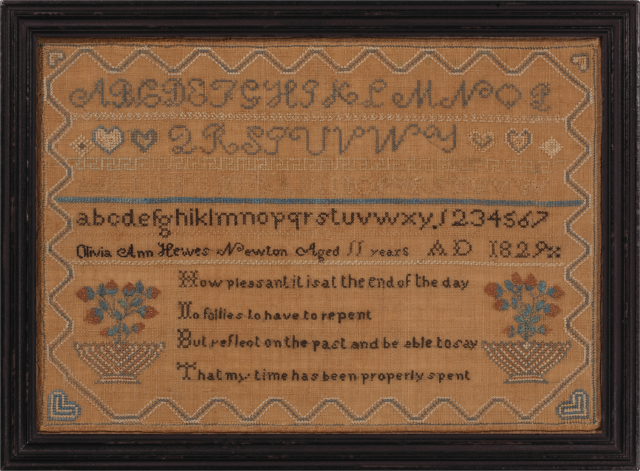 A B C D E F G H I K L M N O P
Q R S T U V W Y
abcdefghiklmnopqrstuvwxy. 1234567
8
Olivia Ann Hewes Newton Aged 11 years A D 1829
How pleasant it is at the end of the day
No follies to have to repent
But reflect on the past and be able to say
That my time has been properly spent